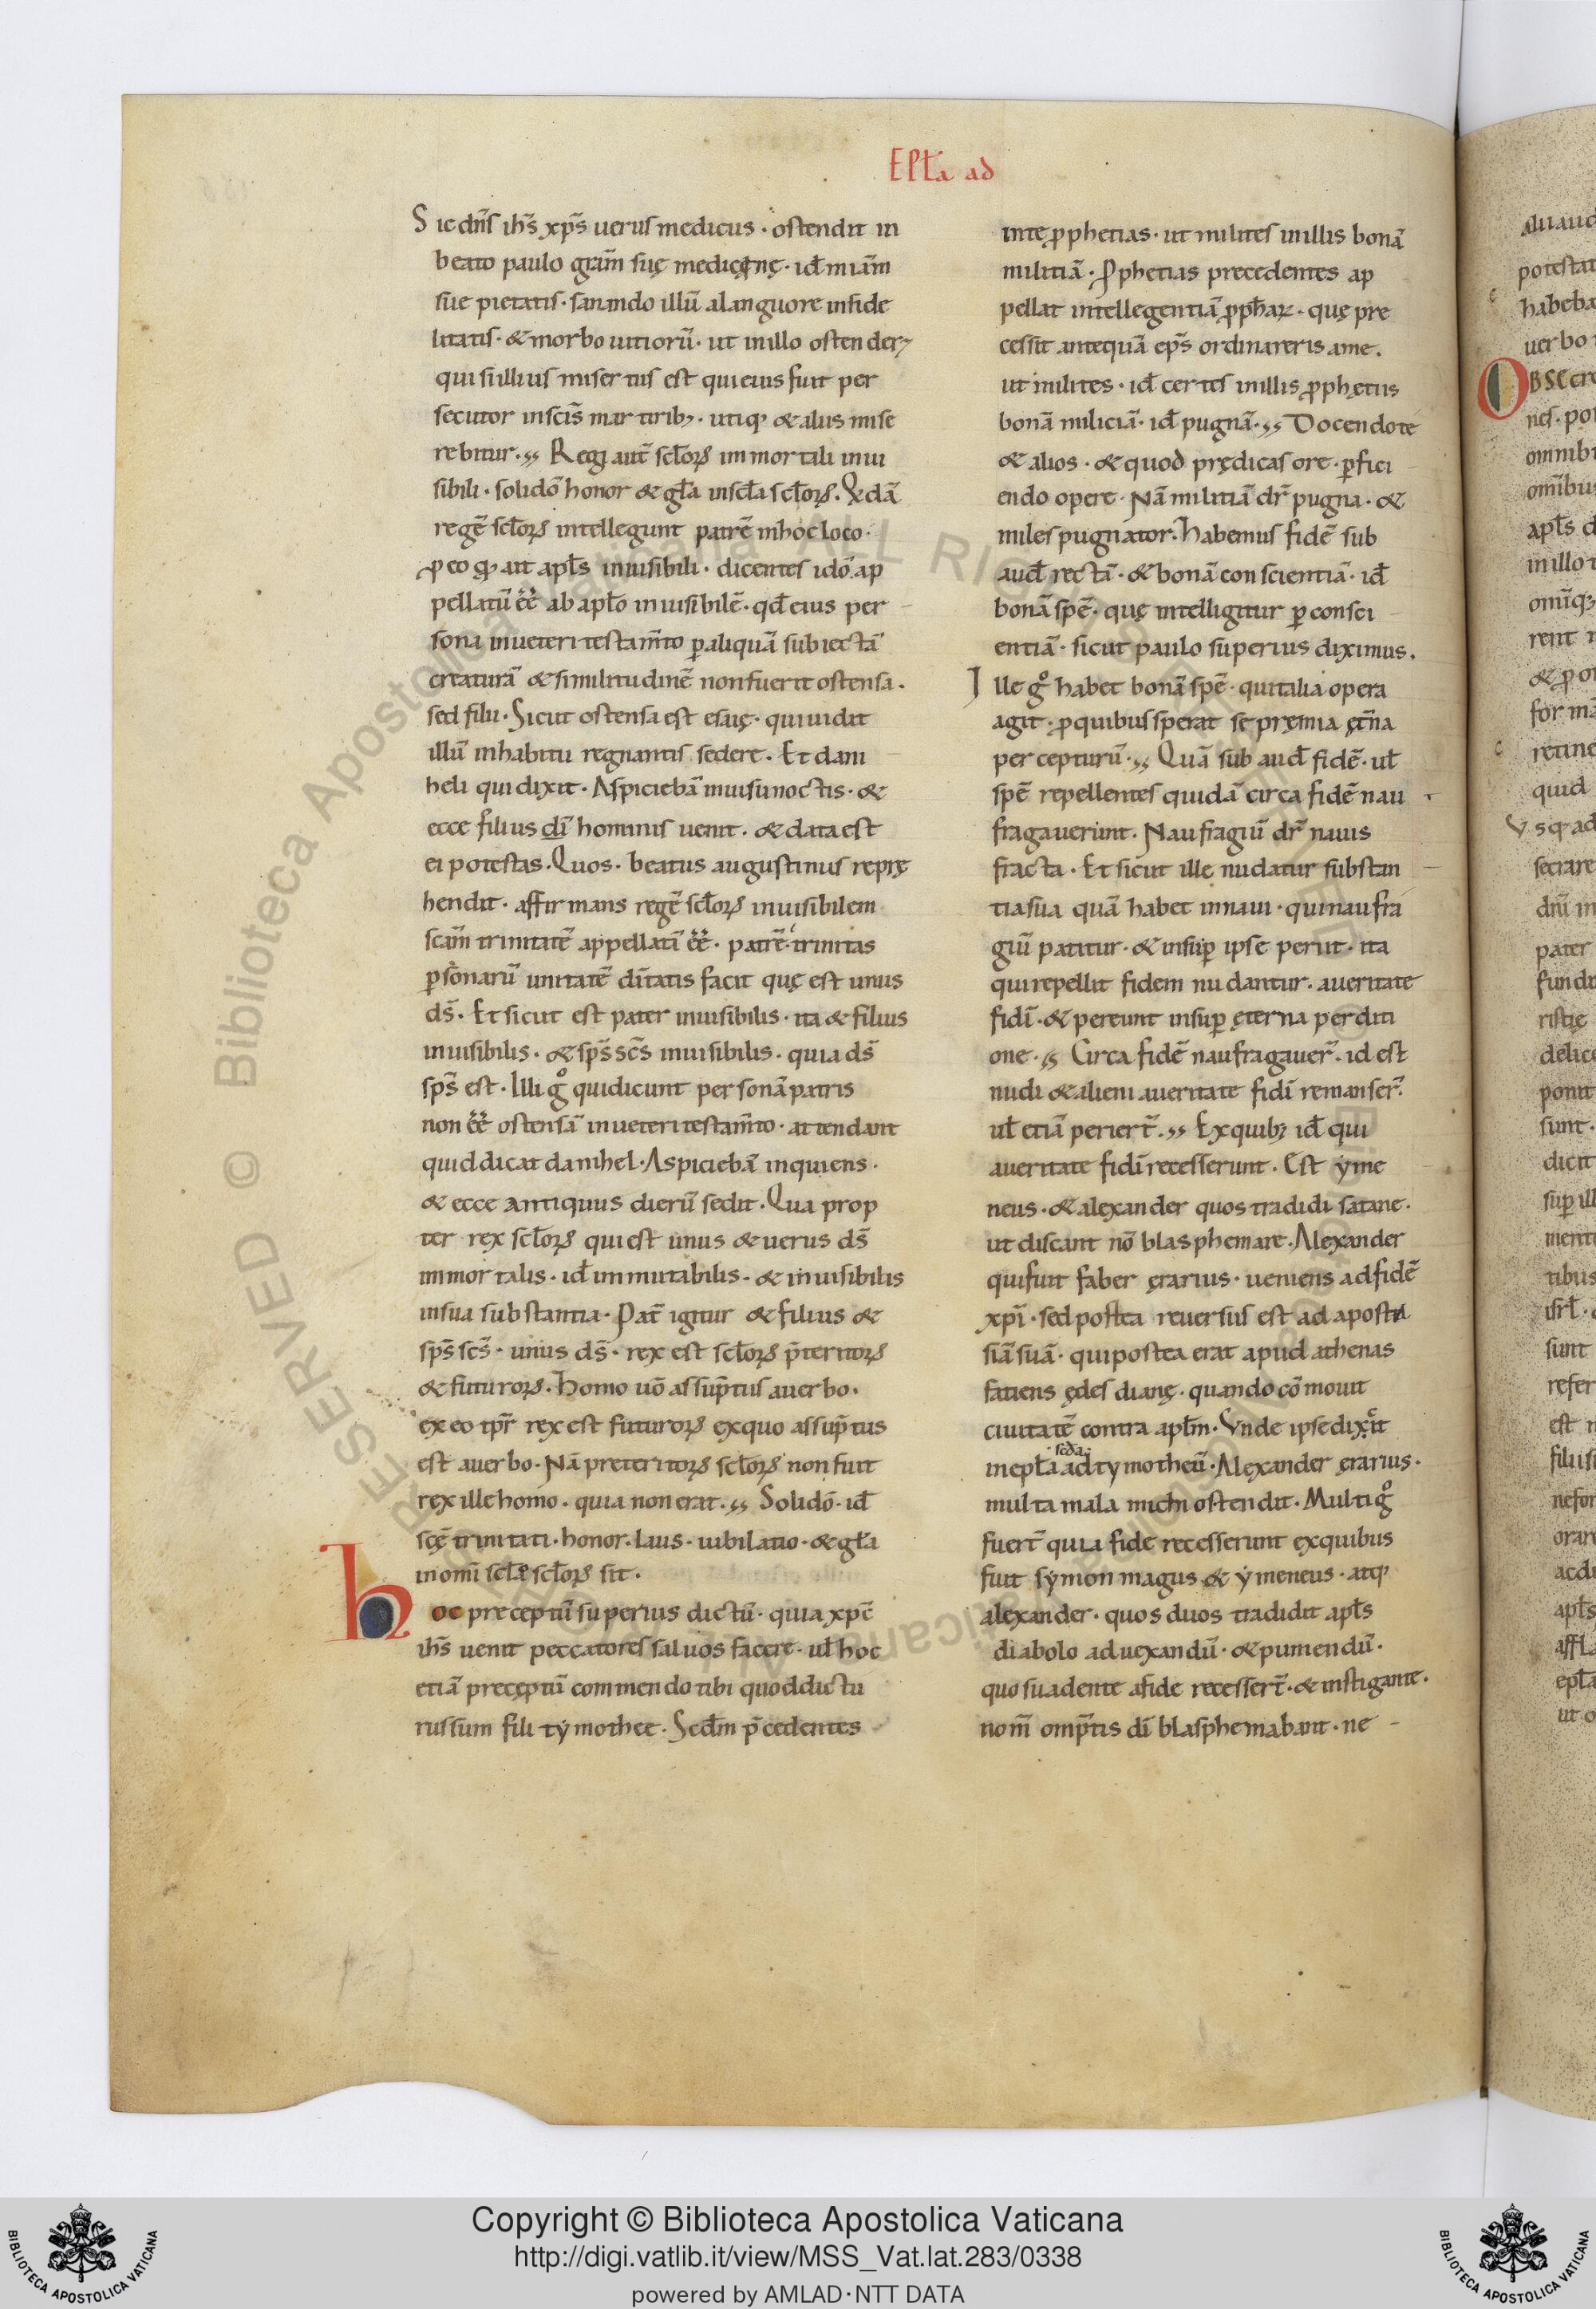 EPl̅a ad
Sic dn̅s ih̅s xp̅s uerus medicus · ostendit in
beato paulo gram̅ suę medicęnę · id̅ miam̅
sue pietatis · sanando illū alanguore infide
litatis · & morbo uitiorū · ut inillo ostender&
quisi illius misertus est qui eius fuit per
secutor inscīs martirib; · utiq; & aliis mise
rebitur · Regi aut̅ scl̅orꝝ immortali inui
sibili · solidō honor & gl̅a inscl̅a scl̅orꝝ. Qdā
regē scl̅orꝝ intellegunt patrē inhocloco ·
ꝓeo qđ ait apl̅s inuisibili · dicentes idō ap
pellatū ee̅ ab apl̅o inuisibilē · qd̅ eius per
sona inueteri testam̅to ꝑaliquā subiectā
creaturā & similitudinē nonfuerit ostensa.
sed filii · Sicut ostensa est esaię · quiuidit
illū inhabitu regnantis sedere. Et dani
heli quidixit · Aspiciebā inuisunoctis · &
ecce filius di̅ hominis uenit. & data est
ei potestas. Quos · beatus augustinus reprę
hendit · affirmans regē scl̅orꝝ inuisibilem
scam̅ trinitatē appellatā ee̅ · patrē · trinitas
ꝑsonarū unitatē di̅tatis facit quę est unus
ds̅. Et sicut est pater inuisibilis · ita & filius
inuisibilis · & sps̅ scs̅ inuisibilis · quia ds̅
sps̅ est. Illi gͦ quidicunt personā patris
non ee̅ ostensā inueteri testam̅to · attendant
quid dicat danihel. Aspiciebā inquiens ·
& ecce antiquus dierū sedit. Qua prop
ter rex scl̅orꝝ qui est unus & uerus ds̅
immortalis · id̅ inmutabilis · & inuisibilis
insua substantia. Pat̅ igitur & filius &
sps̅ scs̅ · unus ds̅ · rex est scl̅orꝝ p̅teritorꝝ
& futurorꝝ. Homo uō assūptus auerbo ·
ex eo tp̅r rex est futurorꝝ exquo assūptus
est auerbo. Nā preteritorꝝ scl̅orꝝ non fuit
rex ille homo · quia nonerat · Solidō · id̅
scę trinitati · honor · laus · iubilatio · & gl̅a
inom̅i scl̅a scl̅orꝝ sit.
hoc preceptū superius dictū · quia xpc̅
ih̅s uenit peccatores saluos facere · ul̅ hoc
etiā preceptū commendo tibi quod dictu
russum fili tymothee · Scd̅m p̅cedentes
inte ꝓphetias · ut milites inillis bonā
militiā · Ꝓphetias precedentes ap
pellat intellegentiā ꝓph̅arꝝ · quę pre
cessit antequā ep̅s ordinareris ame.
ut milites · id̅ certes inillis ꝓphętiis
bonā miliciā · id̅ pugnā · Docendo te
& alios · & quod prędicas ore · ꝑfici
endo opere · Nā militiā dr̅ pugna · &
miles pugnator. Habemus fidē sub
aud̅ rectā · & bonā conscientiā · id̅
bonā spē · quę intelligitur ꝑ consci
entiā · sicut paulo superius diximus.
Ille gͦ habet bonā spē · quitalia opera
agit · ꝓquibus sperat se pręmia ęt̅na
percepturū · Quā sub aud̅ fidē · ul̅
spē repellentes quidā circa fidē nau
fragauerunt. Naufragiū dr̅ nauis
fracta · Et sicut ille nudatur substan
tia sua quā habet innaui · quinaufra
giū patitur · & insuꝑ ipse perit · ita
quirepellit fidem nudantur · aueritate
fidi̅ · & pereunt insuꝑ ęterna perditi
one · Circa fidē naufragauer̅ · id est
nudi & alieni aueritate fidi̅ remanser̅ ·
ul̅ etiā perier̅t · Exquib; id̅ qui
aueritate fidi̅ recesserunt. Est yme
neus · & alexander quos tradidi satane ·
ut discant nō blasphemare. Alexander
quifuit faber ęrarius · ueniens adfidē
xpi̅ · sed postea reuersus est ad aposta
siā suā · qui postea erat apud athenas
fatiens ędes dianę · quando cōmouit
ciuitatē contra apl̅m · Vnde ipse dixit
inepl̅a · scd̅a · ad tymotheū · Alexander ęrarius ·
multa mala michi ostendit. Multi gͦ
fuer̅t quia fide recesserunt exquibus
fuit symon magus & ymeneus · atq;
alexander · quos duos tradidit apl̅s
diabolo aduexandū · & puniendū ·
quo suadente afide recesser̅t · & instigante ·
nom̅ omp̅tis di̅ blasphemabant · ne
Copyright © Biblioteca Apostolica Vaticana
http://digi.vatlib.it/view/MSS_Vat.lat.283/0338
powered by AMLAD · NTT DATA